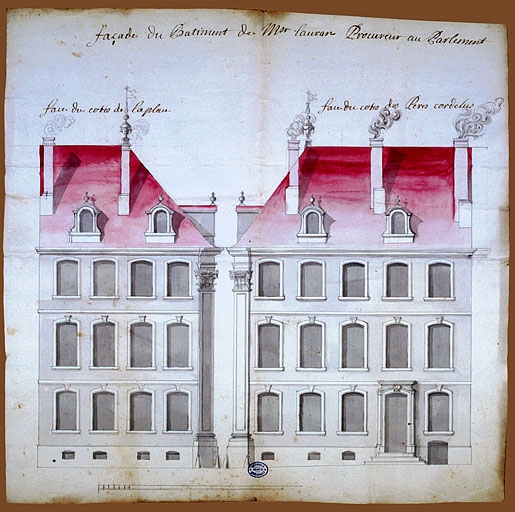 façade du Batiment de Mr lauron Procureur au Parlement
face du cotes de la place
face du cotes des Peres cordelies